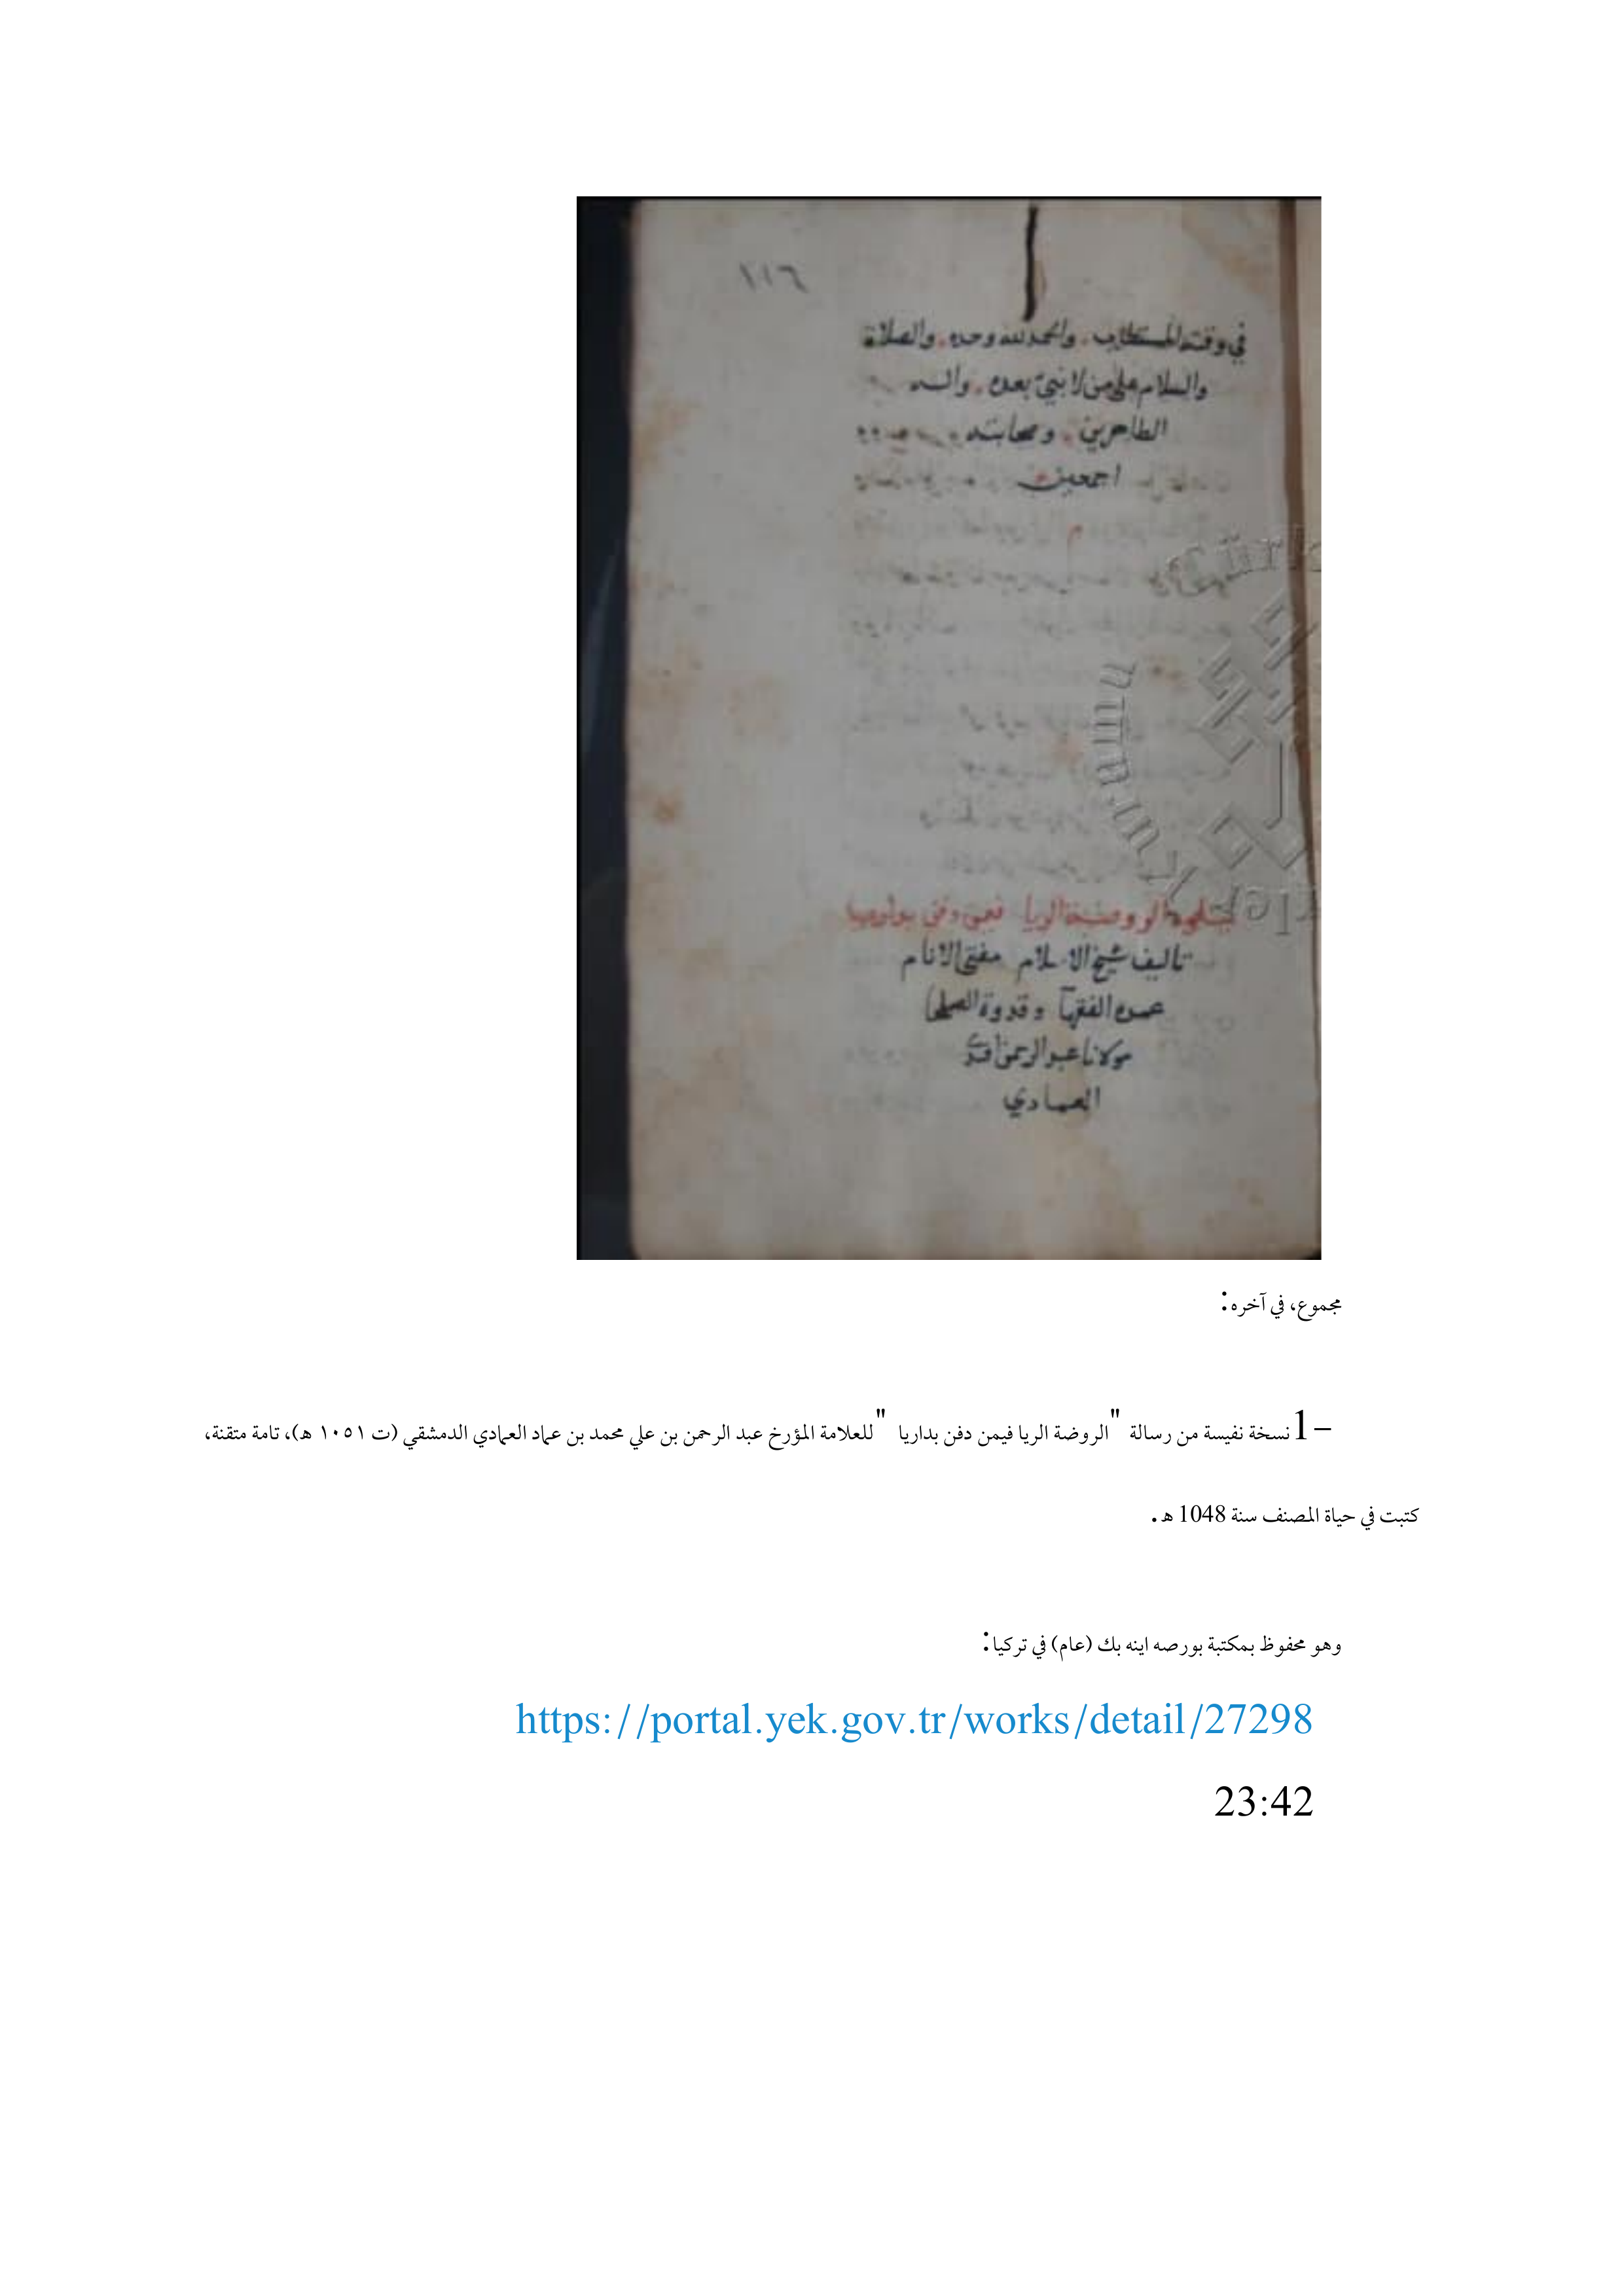 ١١٦
في وقته المستطاب . والحمد لله وحده . والصلاة
والسلام على من لا نبيّ بعده . واله
الطاهرين . وصحابته
اجمعين
الروضة الريا فيمن دفن بداريا
تاليف شيخ الاسلام مفتي الانام
عمدة الفقهآ وقدوة الصلحا
مولانا عبد الرحمن افندي
العمادي
مجموع، في آخره:
1– نسخة نفيسة من رسالة "الروضة الريا فيمن دفن بداريا " للعلامة المؤرخ عبد الرحمن بن علي محمد بن عماد العمادي الدمشقي (ت ١٠٥١ هـ)، تامة متقنة،
كتبت في حياة المصنف سنة 1048 هـ.
وهو محفوظ بمكتبة بورصه اينه بك (عام) في تركيا:
https://portal.yek.gov.tr/works/detail/27298
23:42